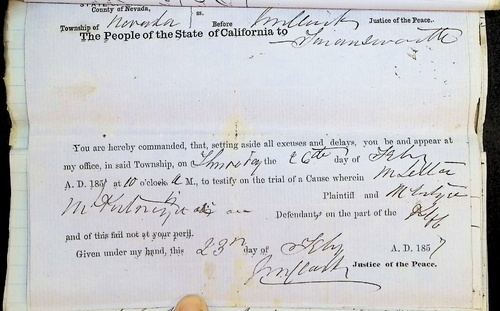 County of Nevada, ss.
Township of Nevada Before Justice of the Peace.
The People of the State of California to
You are hereby commanded, that, setting aside all excuses and delays, you be and appear at
my office, in said Township, on Thursday the 26th day of Feby
A. D. 1857 at 10 o'clock A M., to testify on the trial of a Cause wherein
Plaintiff and
Defendant on the part of the Plff
and of this fail not at your peril.
Given under my hand, this 23rd day of Feby A. D. 1857
Justice of the Peace.